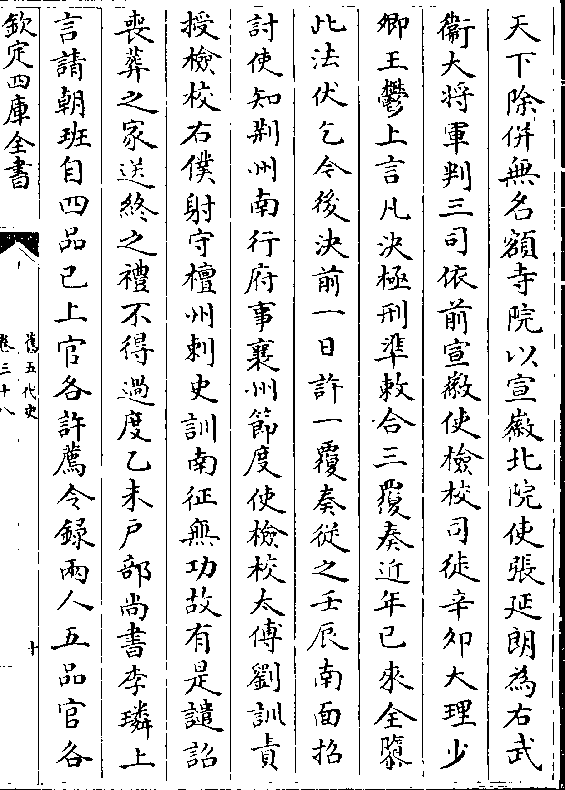 天下除併無名額寺院以宣徽北院使張延朗為右武
衛大將軍判三司依前宣徽使檢校司徒辛卯大理少
卿王鬱上言凡決極刑準敕合三覆奏近年已來全隳
此法伏乞今後決前一日許一覆奏從之壬辰南面招
討使知荆州南行府事襄州節度使檢校太傅劉訓責
授檢校右僕射守檀州刺史訓南征無功故有是譴詔
喪葬之家送終之禮不得過度乙未戸部尚書李璘上
言請朝班自四品已上官各許薦令録兩人五品官各
欽定四庫全書
舊五代史
卷三十八
十